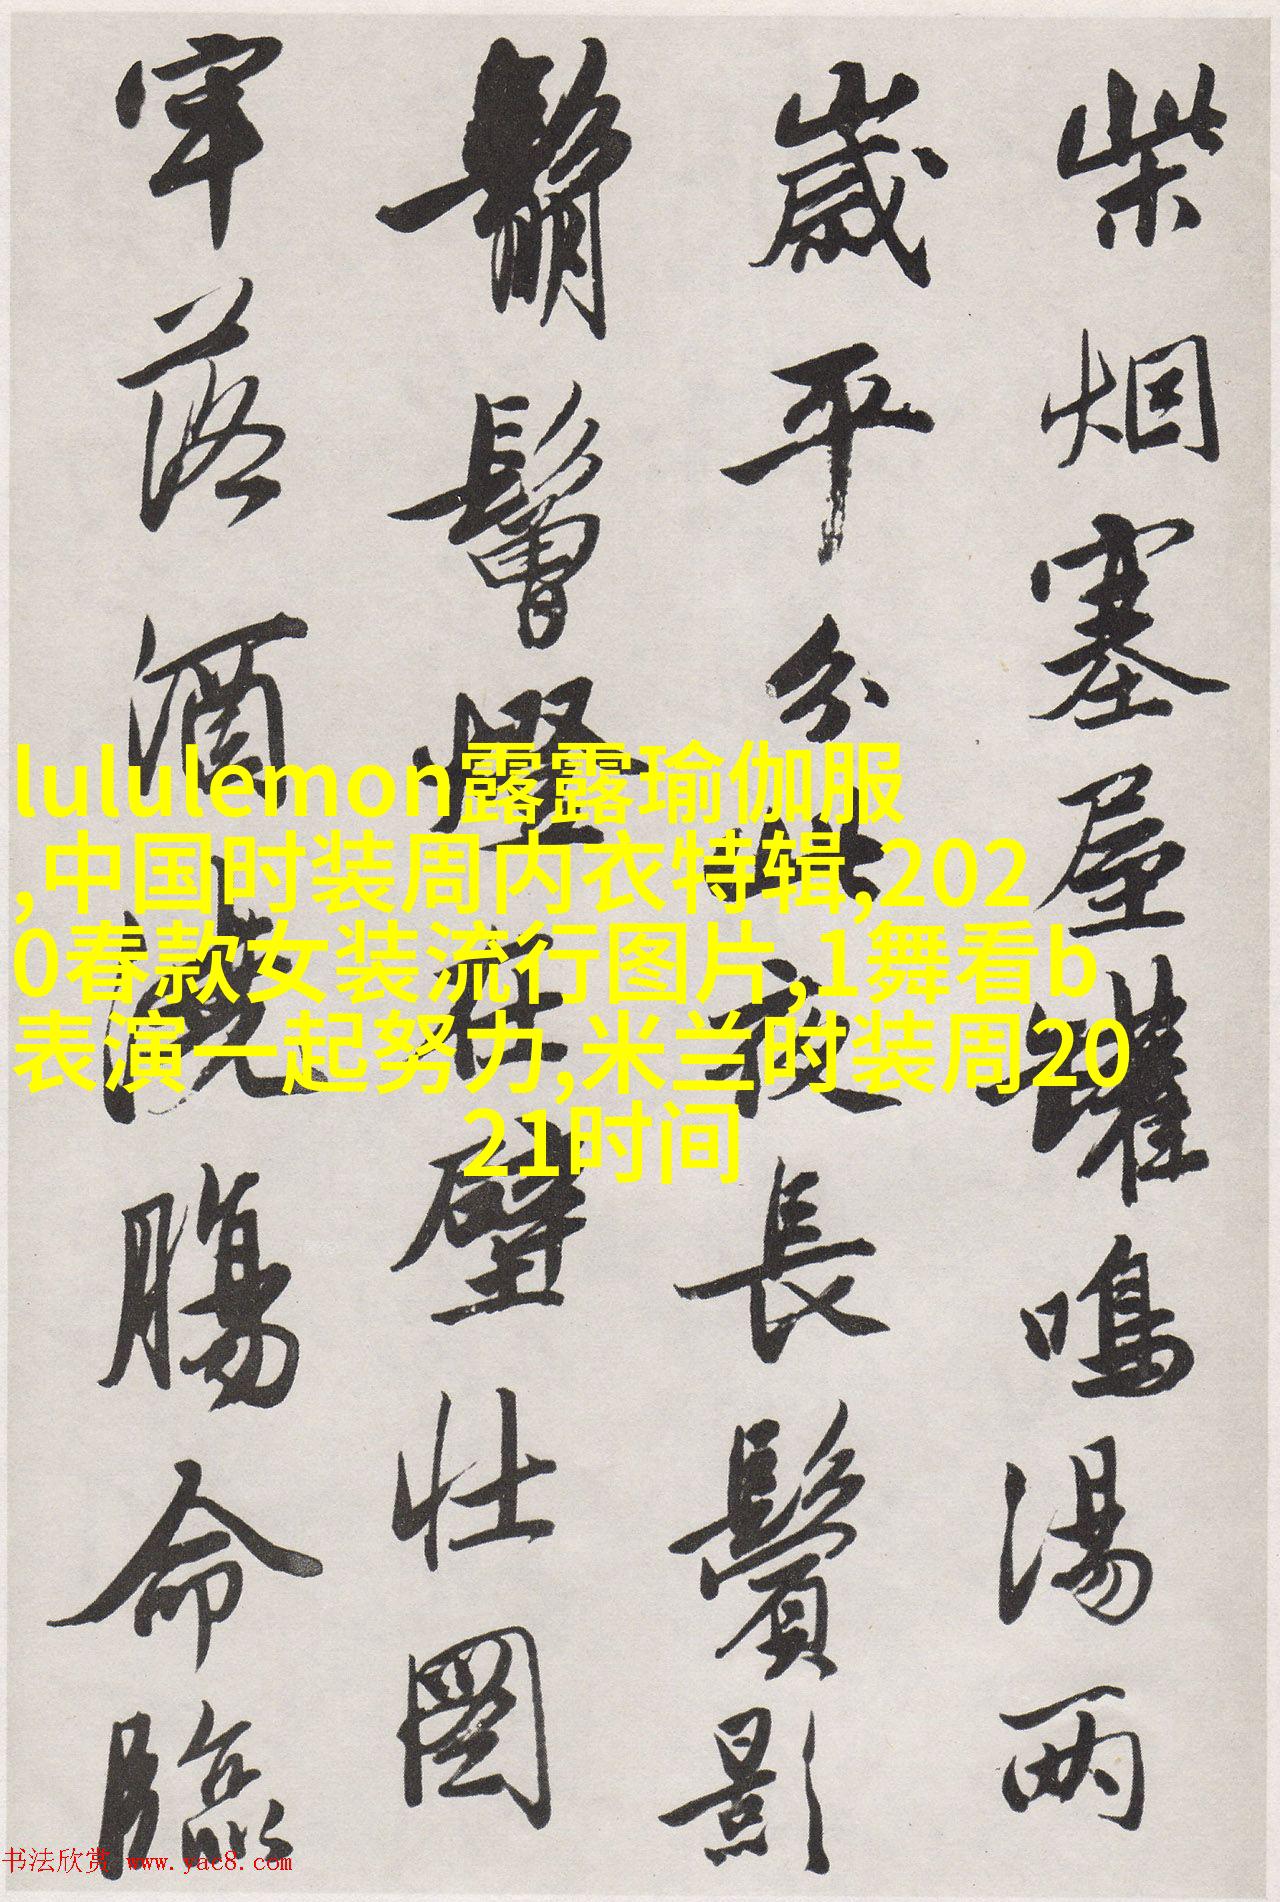 柴烟塞屋罐鳴湯兩
歲平分此夜長鬢影
鬅鬙燈在壁壮圖
牢落酒澆腸命臨
lululemon露露瑜伽服
,中国时装周内衣特辑,202
0春款女装流行图片,1舞看b
表演一起努力,米兰时装周20
21时间
书法欣赏 www.yac8.com